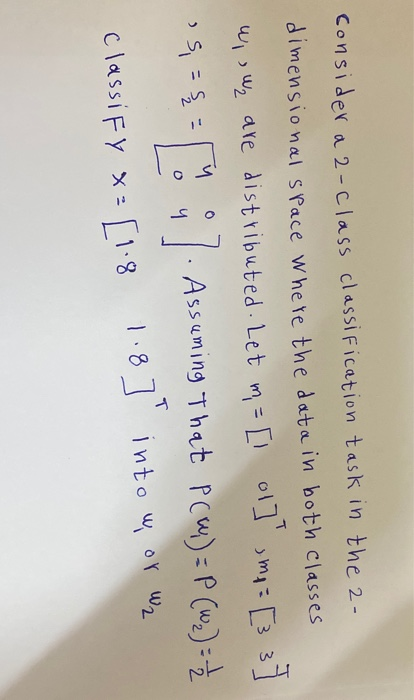 Consider a 2-class classification task in the 2-
dimensional space where the data in both classes
w₁, w₂ are distributed. Let m₁ = [1 01]ᵀ, m₁ = [3 3]ᵀ
, S₁ = S₂ = [4 0 0 4]. Assuming that P(w₁) = P(w₂) = 1/2
classify x = [1.8 1.8]ᵀ into w₁ or w₂